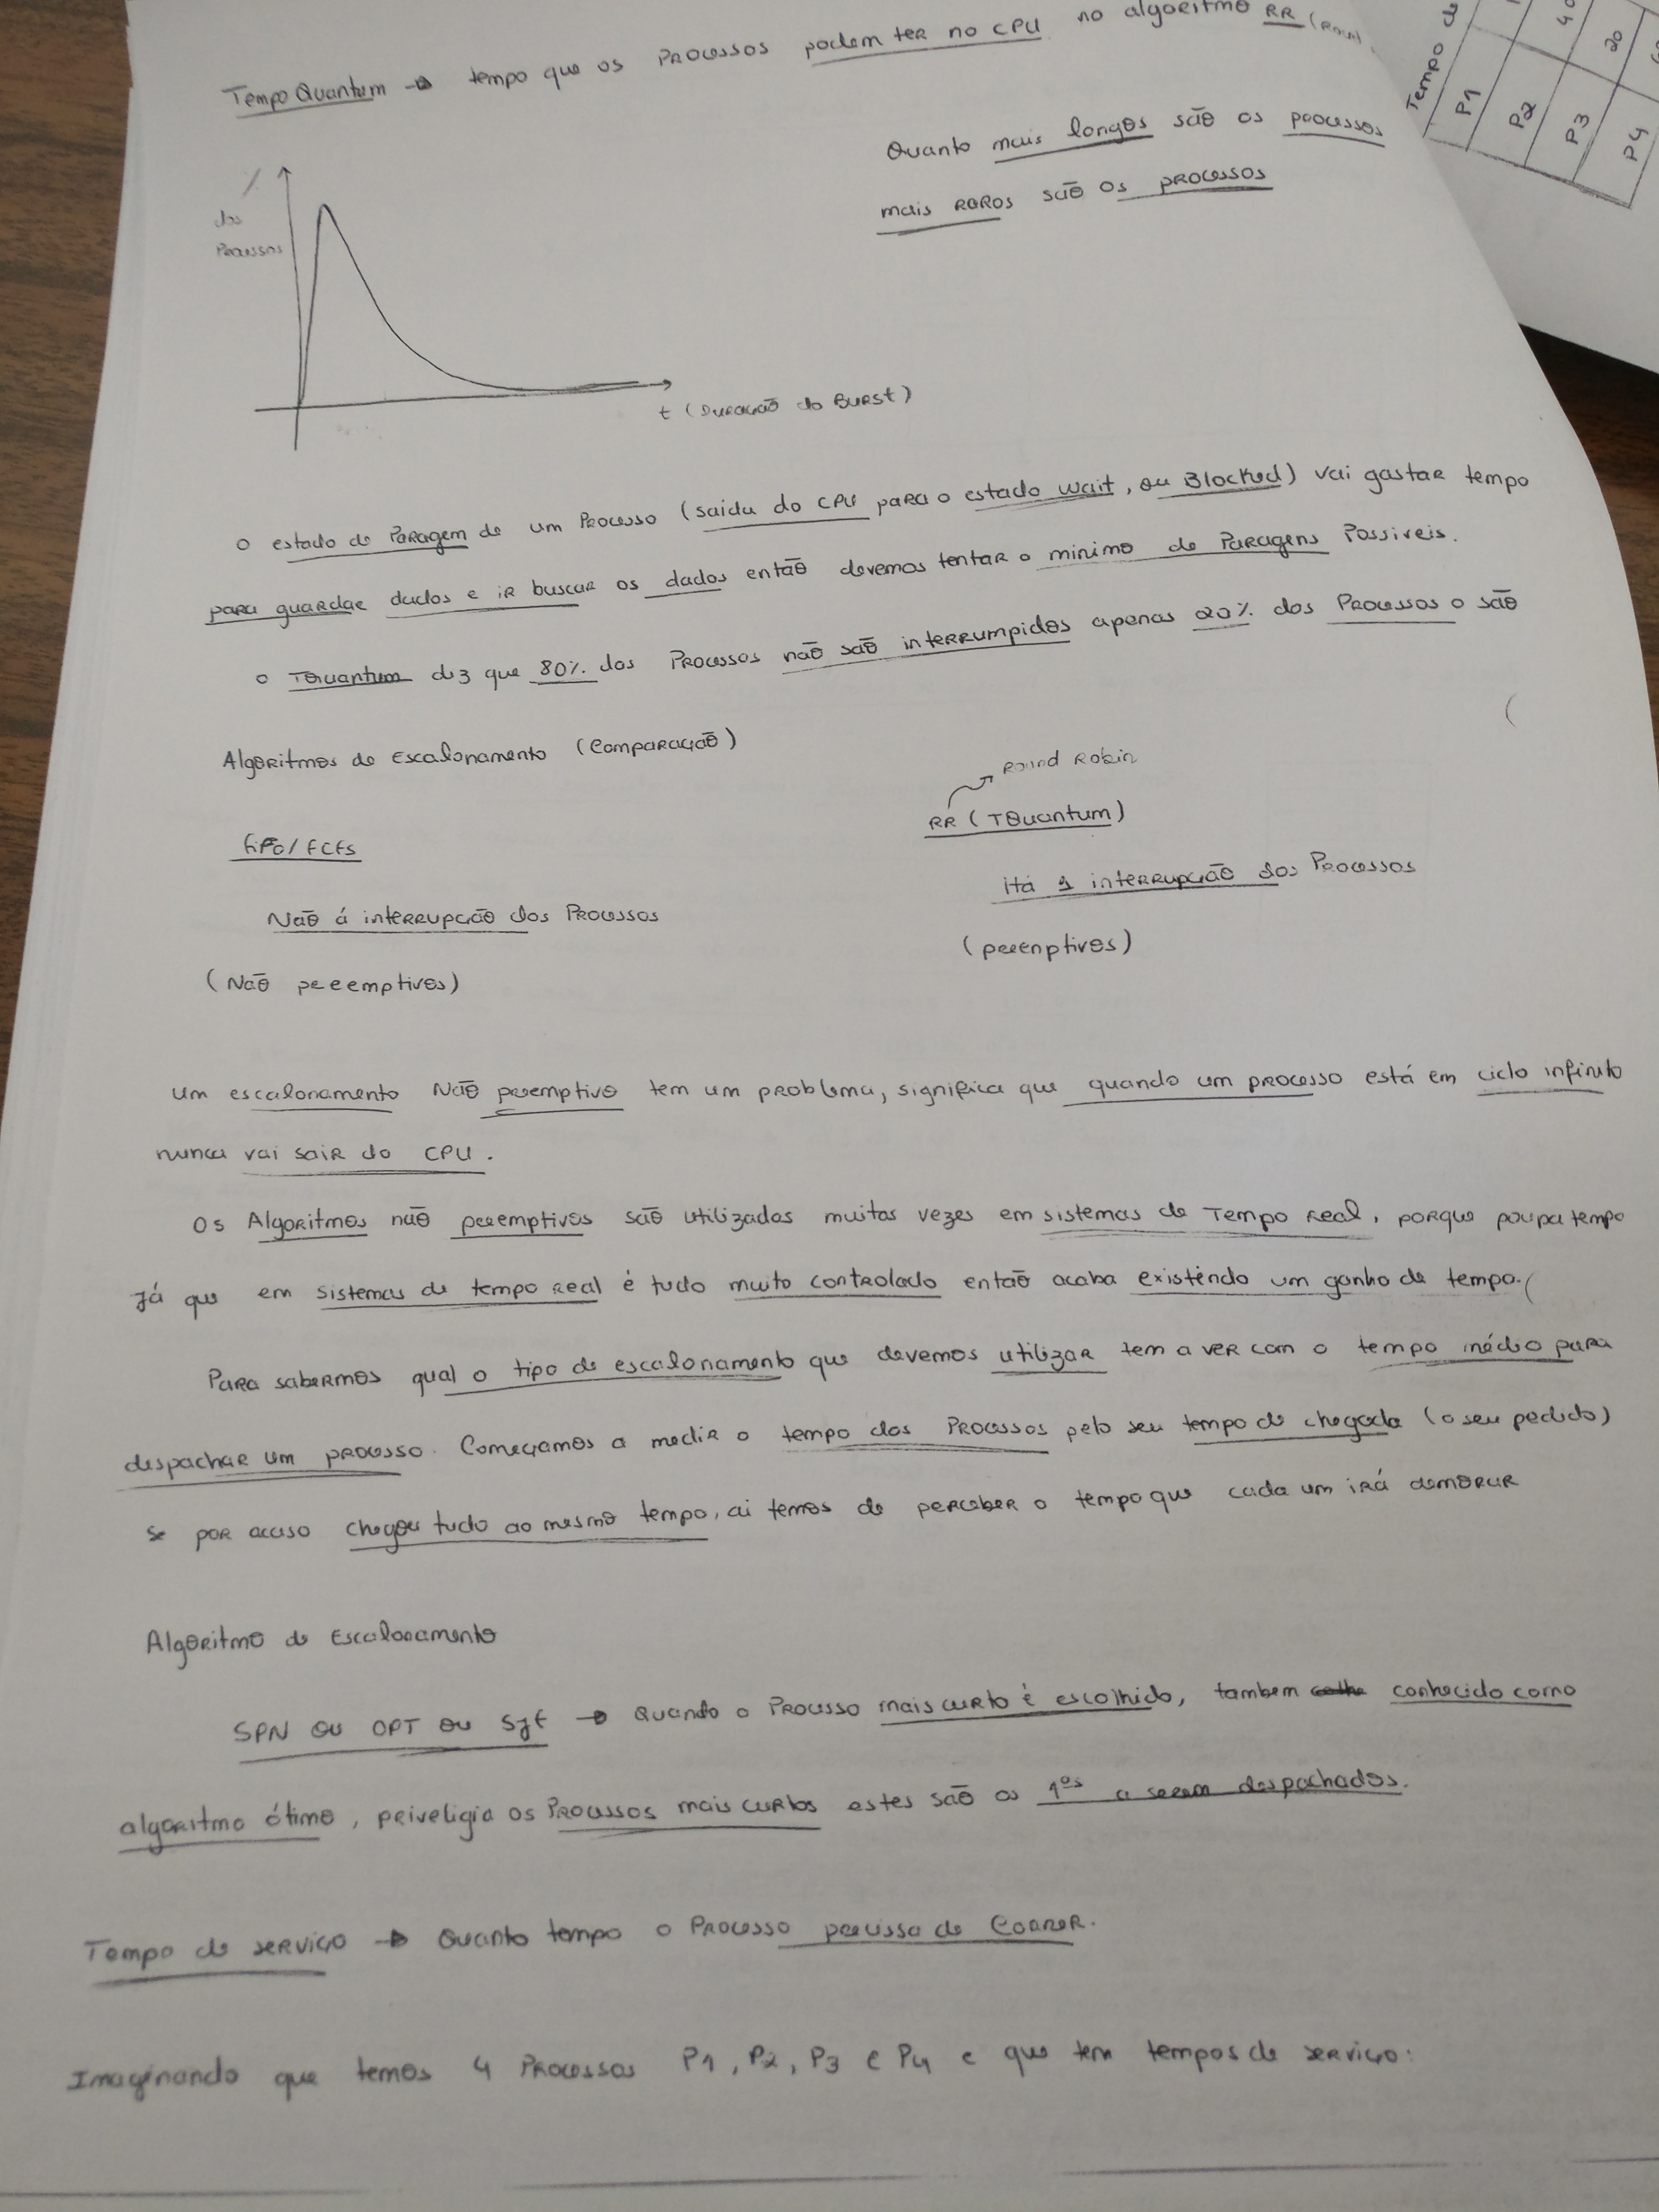 Tempo Quantum → tempo que os Processos podem ter no CPU no algoritmo RR (Round
Quanto mais longos são os processos
mais raros são os processos
%
dos
Processos
t (Duração do Burst)
o estado de Paragem de um Processo (saida do CPU para o estado wait, ou Blocked) vai gastar tempo
para guardar dados e ir buscar os dados então devemos tentar o minimo de Paragens Possiveis.
o TQuantum diz que 80% dos Processos não são interrumpidos apenas 20% dos Processos o são
Algoritmos de Escalonamento (Comparação)
Round Robin
fifo/FCFS
RR (TQuantum)
Não á interrupção dos Processos
Há 1 interrupção dos Processos
(Não preemptivos)
(preenptivos)
um escalonamento Não preemptivo tem um problema, significa que quando um processo está em ciclo infinito
nunca vai sair do CPU.
Os Algoritmos não preemptivos são utilizados muitas vezes em sistemas de Tempo Real, porque poupa tempo
Já que em sistemas de tempo real é tudo muito controlado então acaba existindo um ganho de tempo.(
Para sabermos qual o tipo de escalonamento que devemos utilizar tem a ver com o tempo médio para
despachar um processo. Começamos a medir o tempo dos Processos pelo seu tempo de chegada (o seu pedido)
se por acaso chegou tudo ao mesmo tempo, ai temos de perceber o tempo que cada um irá demorar
Algoritmo de Escalonamento
SPN ou OPT ou Sjf → Quando o Processo mais curto é escolhido, tambem conhecido como
algoritmo ótimo, priveligia os Processos mais curtos estes são os 1ºs a serem despachados.
Tempo de serviço → Quanto tempo o Processo precissa de Correr.
Imaginando que temos 4 Processos P1, P2, P3 e P4 e que tem tempos de serviço:
Tempo de
P1
P2 40
P3 20
P4